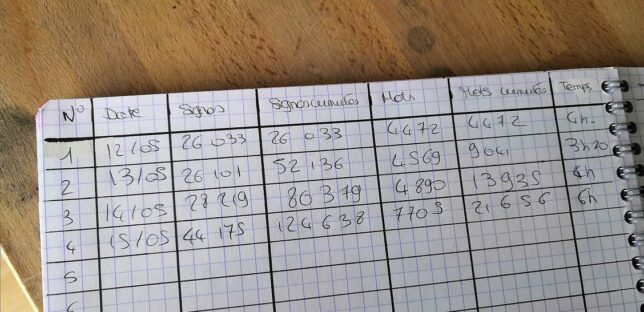 N° Date Signes Signes cumulés Mots Mots cumulés Temps
1 12/05 26 033 26 033 4472 4472 4h
2 13/05 26 101 52 136 4569 9041 3h20
3 14/05 28 219 80 379 4890 13935 4h
4 15/05 44 175 124 638 7705 21 656 6h
5
6